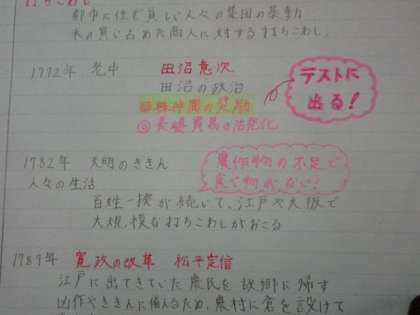 打ちこわし
都市に住む貧しい人々の集団の暴動
米の買い占めた商人に対する打ちこわし。
1772年 老中 田沼意次
田沼の政治
①株仲間の奨励
②長崎貿易の活発化
テストに
出る!
1782年 天明のききん
人々の生活
農作物の不足で
食べ物がない!
百姓一揆が続いて、江戸や大阪で
大規模な打ちこわしがおこる
1787年 寛政の改革 松平定信
江戸に出てきていた農民を故郷に帰す
凶作やききんに備えるため、農村に倉を設けて